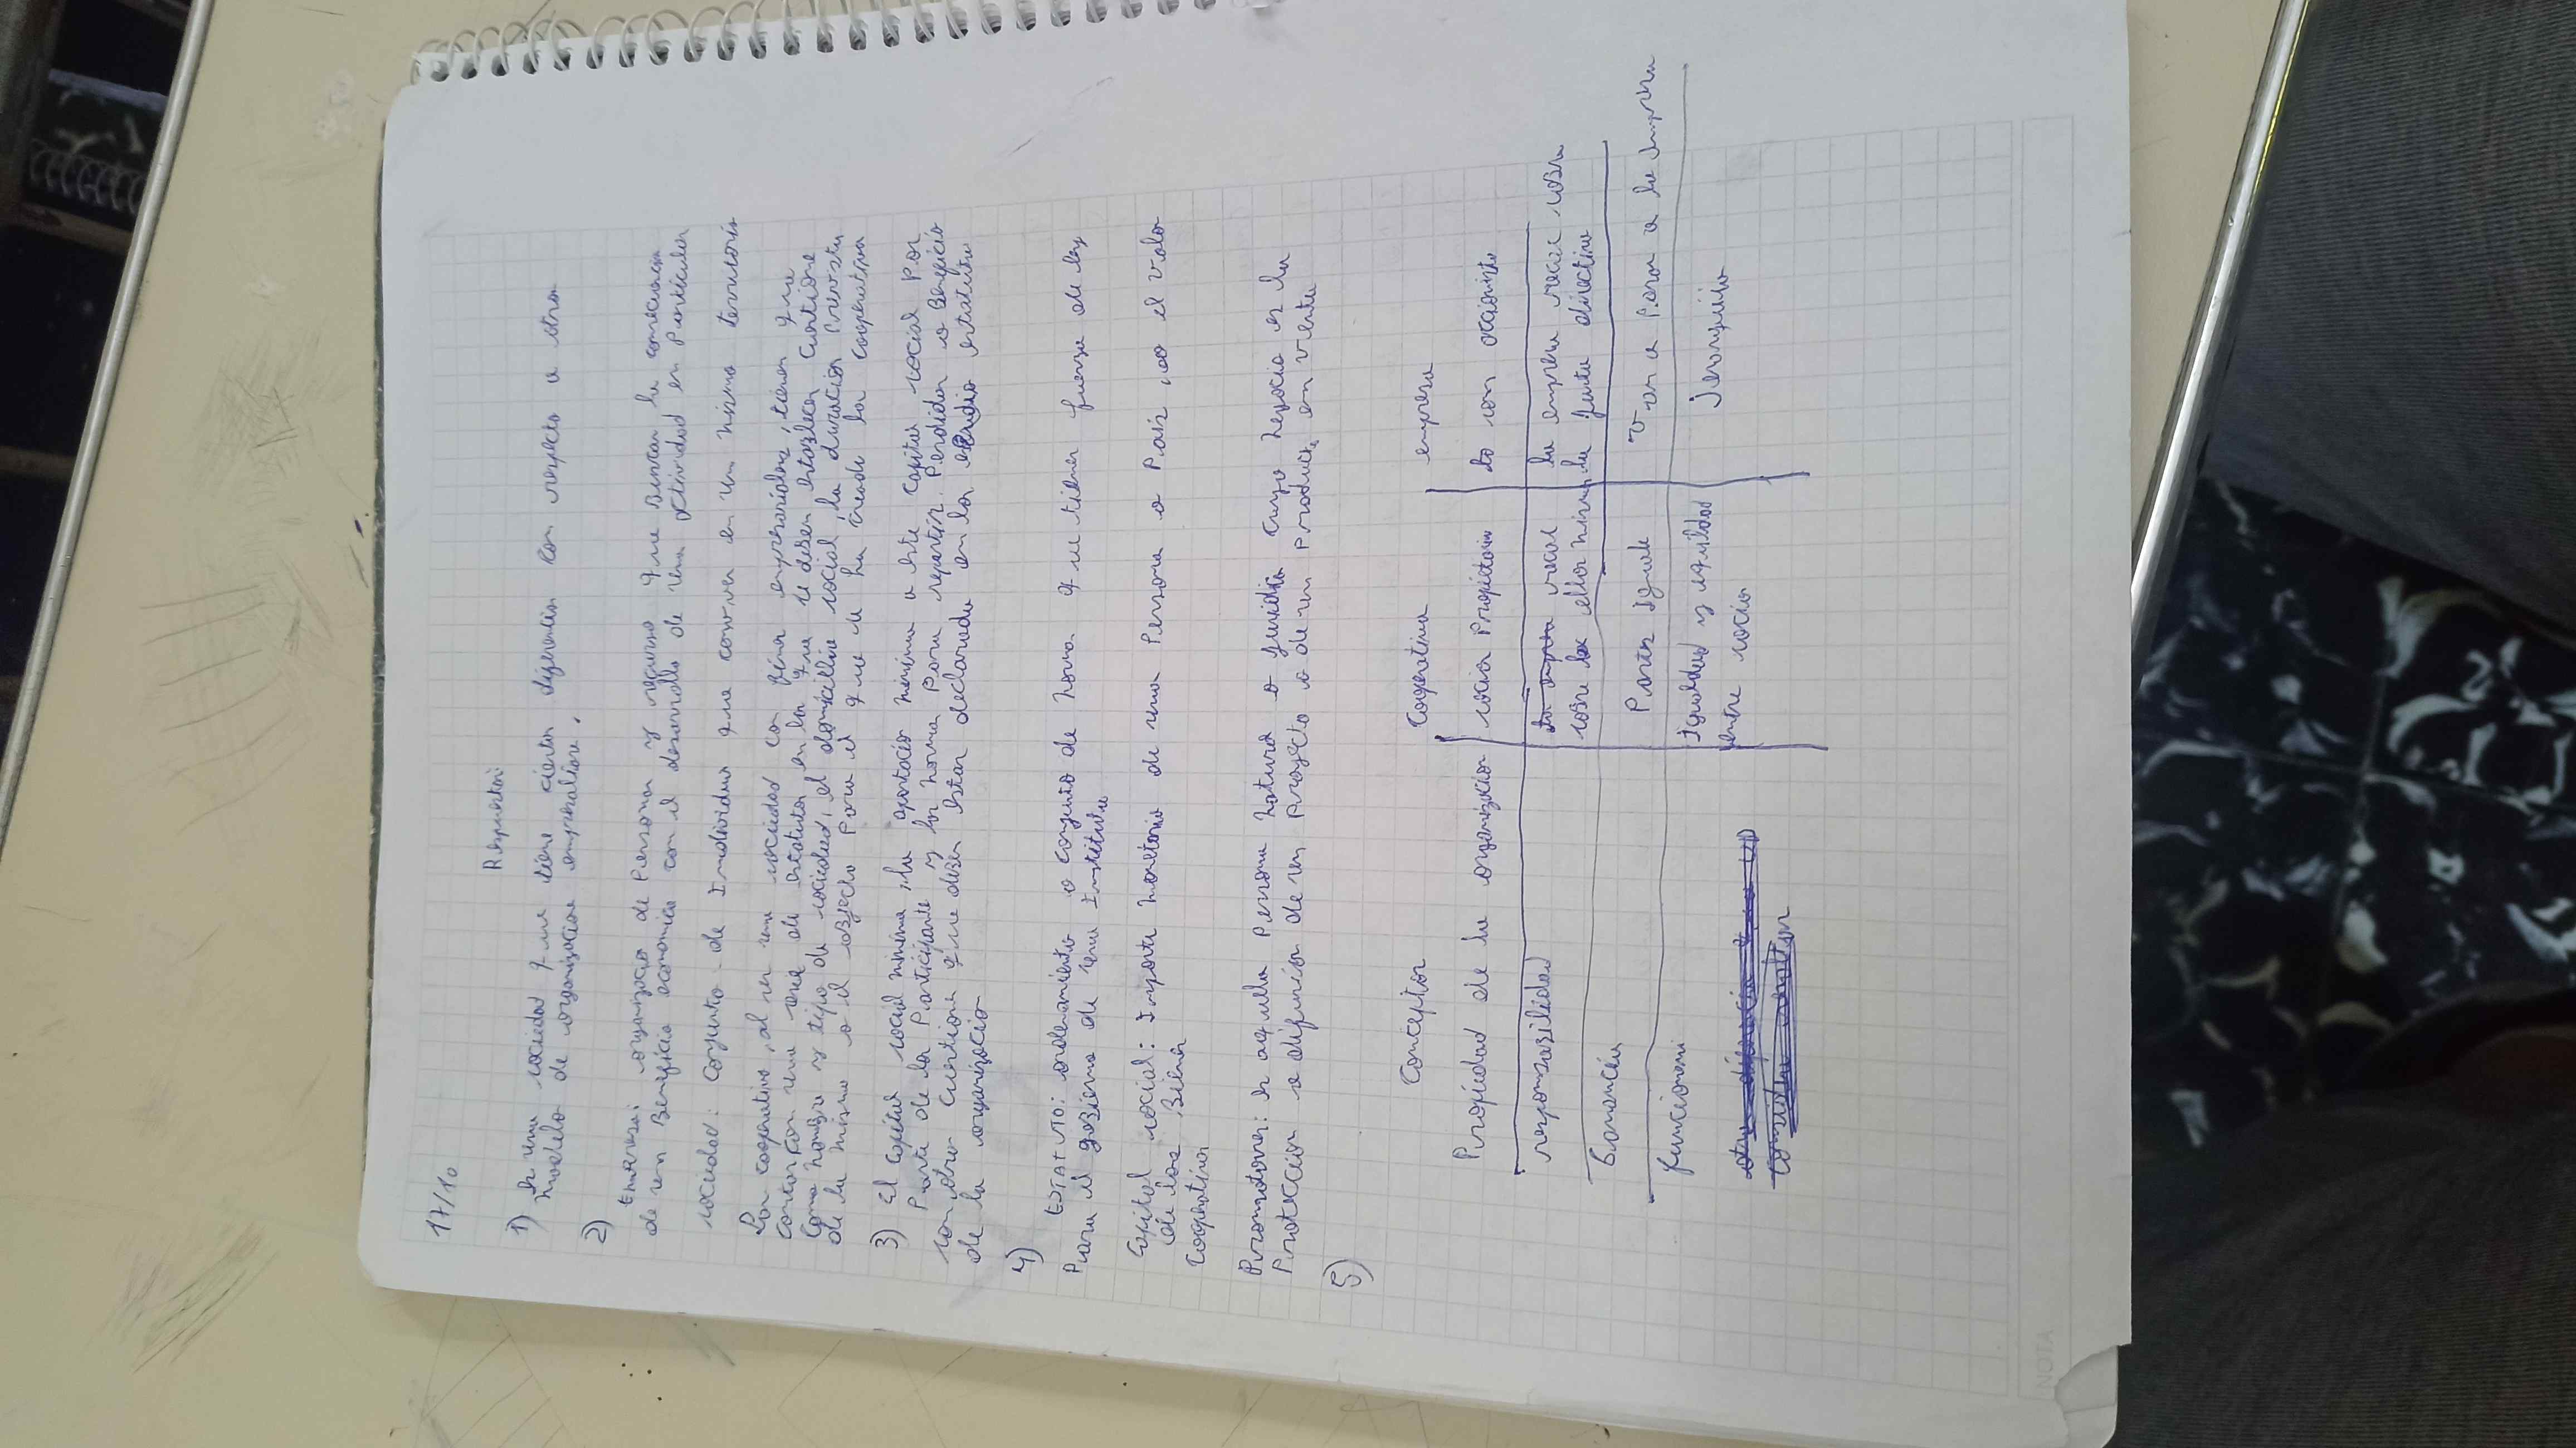 17/10
Respuestas:
1) Es una sociedad que tiene ciertas diferencias con respecto a otros
modelos de organizaciones empresatiare.
2) Empresa: organizacio de Personas y recursos que Buscan la consecucion
de un Beneficio economico con el desarrollo de una Actividad en Particular
sociedad: Conjunto de Individuos que conviven en un mismo territorio
Las cooperativas, al ser una sociedad con fines empresariales, tienen que
contar con una serie de estatutos en los que se deben establecer cuestiones
como nombre y tipo de sociedad, el domicilio social, la duracion Prevista
de la misma o el objecto Para el que se ha creado la cooperativa
3) El capital social minimo, la aportacion minima a este capital social Por
Parte de los Participante y las normas Para repartir Perdidas o Beneficio
son otras cuestiones que deben estar declaradas en los estatutos
de la organizacion
4) ESTATUTO: ordenamiento o conjunto de normas que tienen fuerza de ley
Para el gobierno de una Institutos
Capital social: Importe monetario de una Persona o Pais, o el valor
de los Bienes
Cooperativa
Promotores: es aquella Persona natural o juridica cuyo negocio es la
Protección o difusion de un Proyecto o de un Producto en venta
5)
Conceptos Cooperativa empresa
Propiedad de la organizacion socios Propietarios Lo son accionista
responsabilidad recae sobre los ellos mismos la empresa recae sobre la junta directiva
Ganancias Partes iguale Van a Parar a la empresa
funcionami Igualdad y equidad entre socios Jerarquico